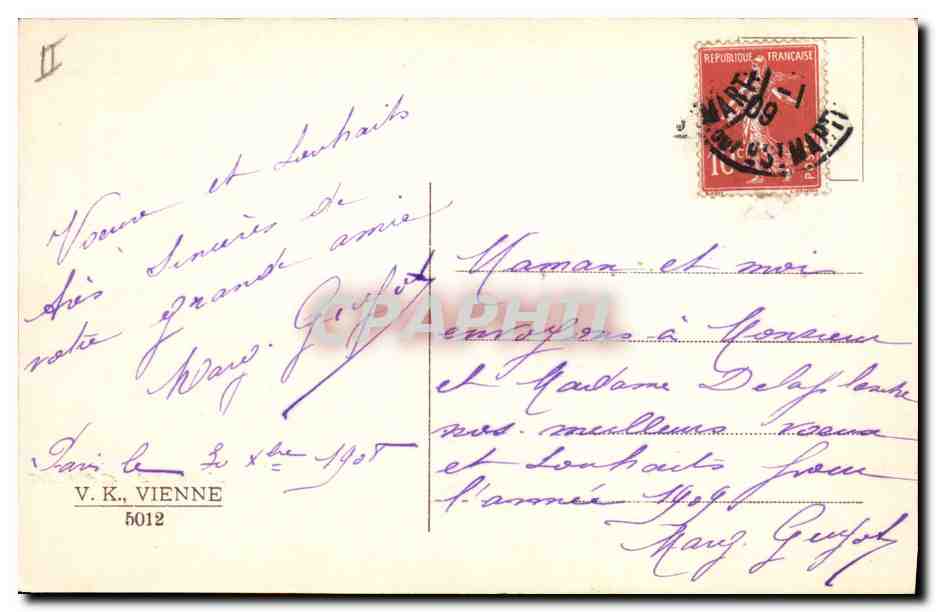 II
Voeux et souhaits
très sincères de
votre grande amie
Marg. Guyot
Paris le 30 Xbre 1908
V. K., VIENNE
5012
REPUBLIQUE FRANÇAISE
10 c POSTES
-1
09
Maman et moi
envoyons à Monsieur
et Madame
nos meilleurs voeux
et souhaits pour
l'année 1909
Marg. Guyot
CPAPHIL